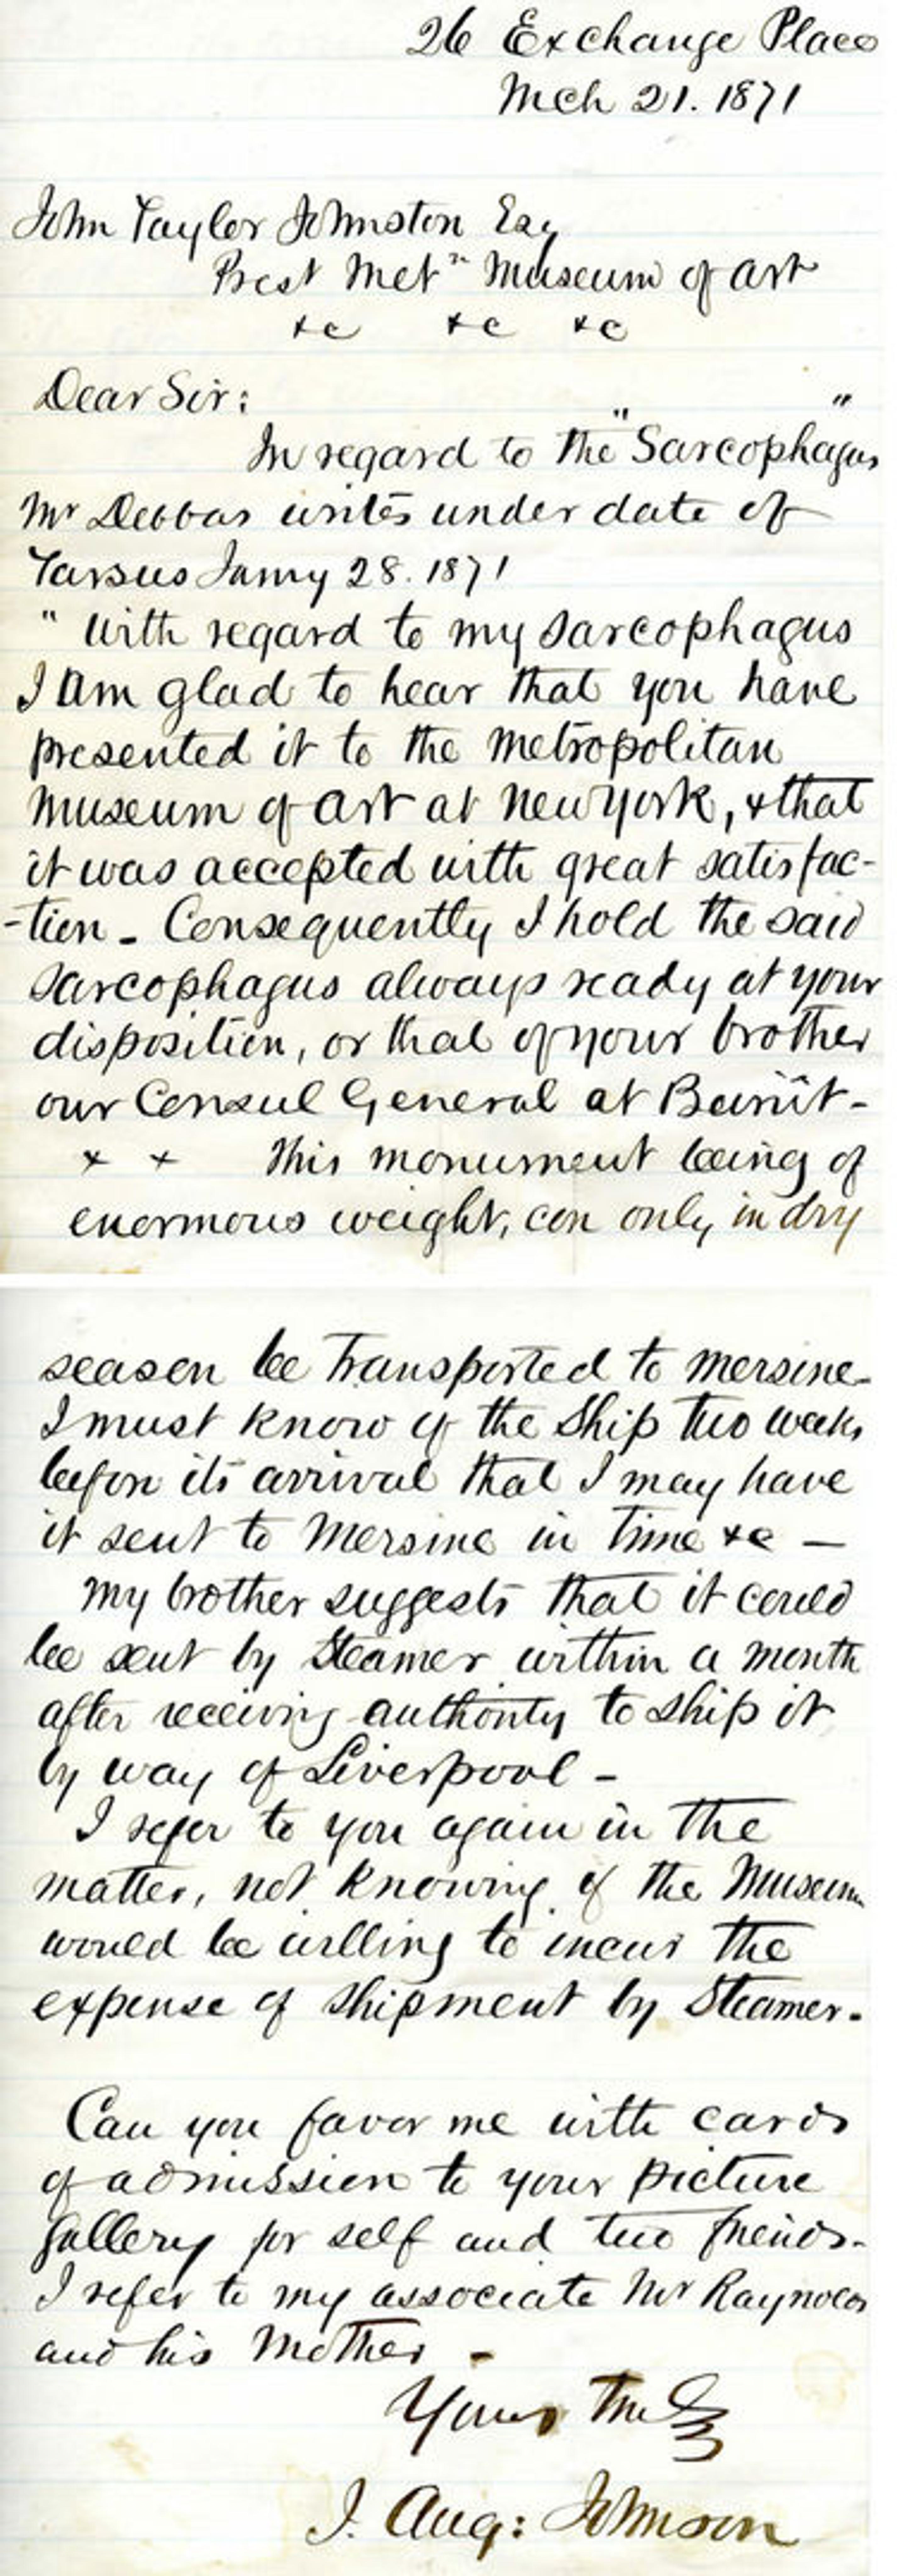 26 Exchange Place
Mch 21. 1871
John Taylor Johnston Esq
Prest Metn Museum of Art
&c &c &c
Dear Sir:
In regard to the "Sarcophagus"
Mr Debbas writes under date of
Tarsus Jany 28. 1871
" With regard to my Sarcophagus
I am glad to hear that you have
presented it to the Metropolitan
Museum of Art at New York, & that
it was accepted with great satisfac-
-tion - Consequently I hold the said
Sarcophagus always ready at your
disposition, or that of your brother
our Consul General at Beirût -
x x This monument being of
enormous weight, can only in dry
season be transported to Mersine -
I must know of the Ship two weeks
before its arrival that I may have
it sent to Mersine in time &c —
My brother suggests that it could
be sent by Steamer within a month
after receiving authority to ship it
by way of Liverpool -
I refer to you again in the
matter, not knowing if the Museum
would be willing to incur the
expense of shipment by Steamer.
Can you favor me with cards
of admission to your picture
gallery for self and two friends -
I refer to my associate Mr Raynolds
and his Mother -
Yours Truly
J. Aug: Johnson